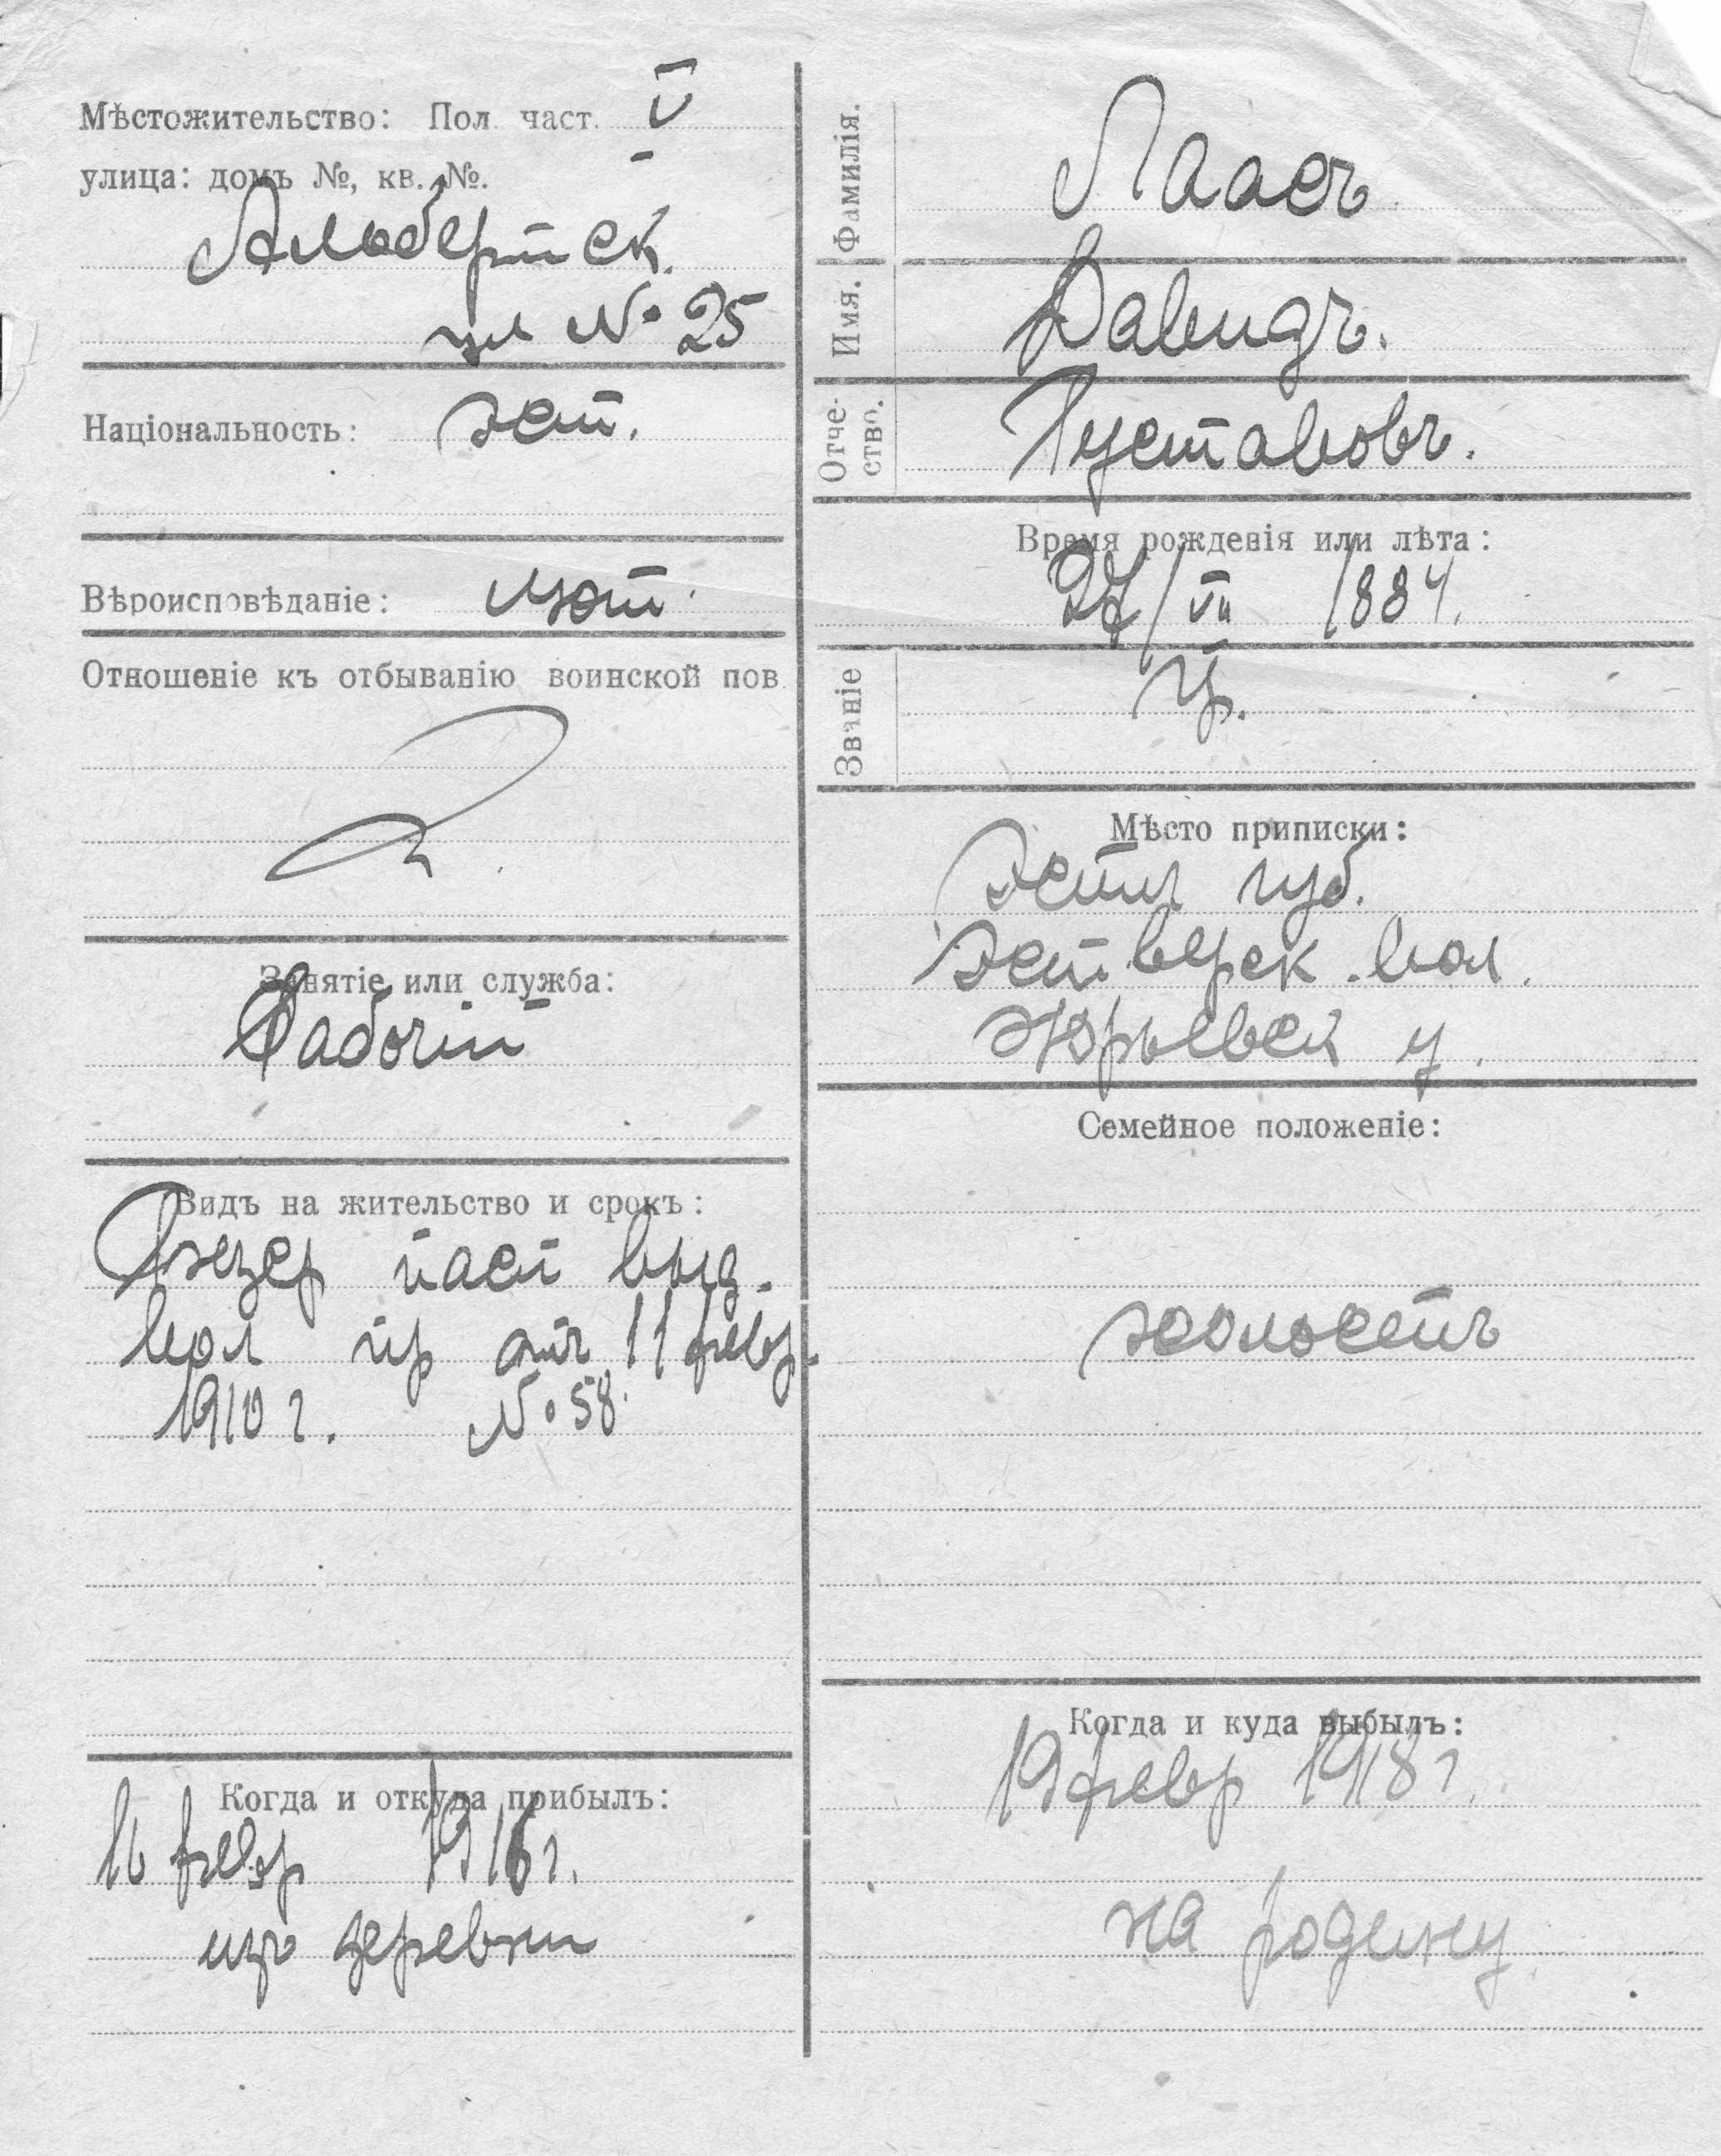 Мѣстожительство: Пол. част. V
улица: домъ №, кв. №.
Альбертск.
ул № 25
Національность: эст.
Вѣроисповѣданіе: лют.
Отношеніе къ отбыванію воинской пов
Занятіе или служба:
Рабочій
Видъ на жительство и срокъ:
пасп выд.
вол пр отъ 11 февр.
1910 г. № 58.
Когда и откуда прибылъ:
16 февр 1916 г.
изъ деревни
Фамилія. Лаасъ
Имя. Давидъ.
Отче-
ство. Густавовъ.
Время рожденія или лѣта:
27/VII 1884.
Званіе кр.
Мѣсто приписки:
Эстл губ.
вол.
Юрьевск у.
Семейное положеніе:
холостъ
Когда и куда выбылъ:
19 февр 1918 г.
на родину